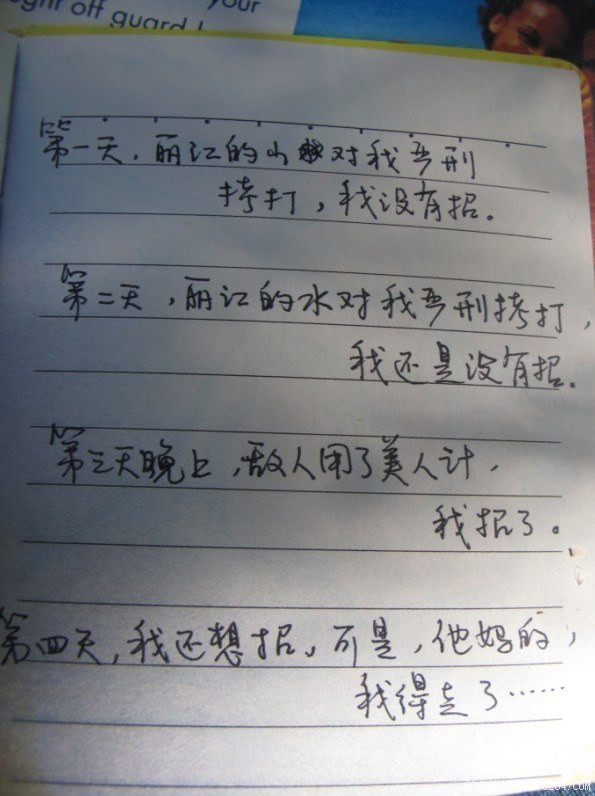 ght off your
guard!
第一天，丽江的山对我严刑
拷打，我没有招。
第二天，丽江的水对我严刑拷打，
我还是没有招。
第三天晚上，敌人用了美人计，
我招了。
第四天，我还想招，可是，他妈的，
我得走了……